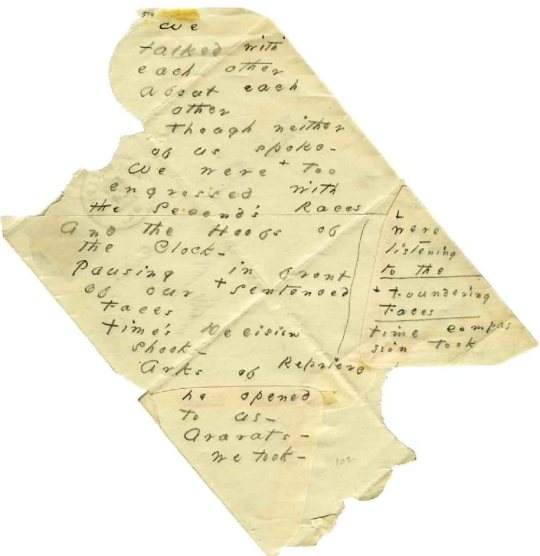 We
talked with
each other
about each
other
though neither
of us spoke -
We were + too
engrossed with
the Second's Races
And the Hoofs of
the Clock -
Pausing in front
of our + sentenced
Faces
Time's Decision
shook -
Arks of Reprieve
he opened
to us -
Ararats -
we took -
were
listening
to the
+ foundering
Faces
time compas
sion took
102